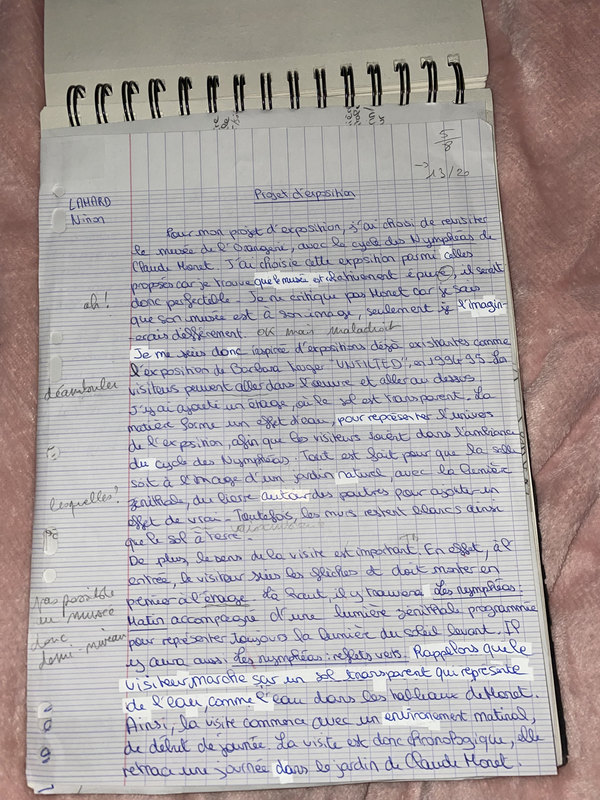 5
8
→ 13/20
LAHARD
Ninon
Projet d'exposition
Pour mon projet d'exposition, j'ai choisi de revisiter
le musée de l'orangerie, avec le cycle des Nymphéas de
Claude Monet. J'ai choisie cette exposition parmi celles
proposés car je trouve que le musée est relativement épuré, il serait
ah!
donc perfectible. Je ne critique pas Monet car je sais
que son musée est à son image, seulement je l'imagin-
erais différement. OK mais maladroit
Je me suis donc inspirée d'expositions déjà existantes comme
l'exposition de Barbara Kruger "UNTILTED", en 1994-95. Les
déambuler
visiteurs peuvent aller dans l'œuvre et aller au dessus.
J'y ai ajouté un étage, où le sol est transparent. La
matière forme un effet d'eau, pour représenter l'univers
de l'exposition, afin que les visiteurs soient dans l'ambiance
du cycle des Nymphéas. Tout est fait pour que la salle
soit à l'image d'un jardin naturel, avec la lumière
lesquelles?
zénithale, du lierre autour des poutres pour ajouter un
effet de vrai. Toutefois, les murs restent blancs ainsi
que le sol à terre.
TB
De plus le sens de la visite est important. En effet, à l'
entrée, le visiteur suis les flèches et doit monter en
premier à l'étage. Là haut, il y trouvera Les nymphéas:
pas possible
au musée
donc
demi-niveau
Matin accompagné d'une lumière zénithale programmée
pour représenter toujours la lumière du soleil levant. Il
y aura aussi Les nymphéas: reflets verts. Rappelons que le
visiteur, marche sur un sol transparent qui représente
de l'eau, comme l'eau dans les tableaux de Monet.
Ainsi, la visite commence avec un environement matinal,
de début de journée. La visite est donc chronologique, elle
retrace une journée dans le jardin de Claude Monet.